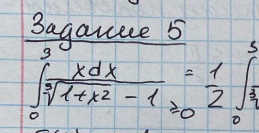 Задание 5
∫₀³ xdx / (∛(1+x²) - 1) ≥0 = 1/2 ∫₀³ ∛